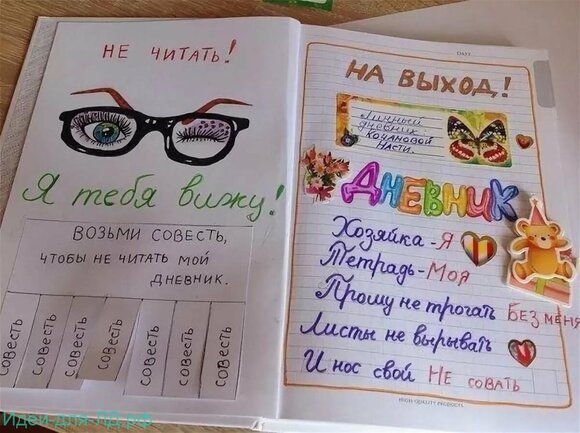 НЕ ЧИТАТЬ!
Я тебя вижу!
ВОЗЬМИ СОВЕСТЬ,
ЧТОБЫ НЕ ЧИТАТЬ МОЙ
ДНЕВНИК.
СОВЕСТЬ
СОВЕСТЬ
СОВЕСТЬ
СОВЕСТЬ
СОВЕСТЬ
СОВЕСТЬ
СОВЕСТЬ
DATE
НА ВЫХОД!
Личный
дневник:
КОЧАНОВОЙ
НАСТИ.
ДНЕВНИК
Хозяйка-Я
Тетрадь-Моя
Прошу не трогать БЕЗ МЕНЯ
Листы не вырывать
И нос свой НЕ СОВАТЬ
HIGH-QUALITY PRODUCTS
Идеи-для-ЛД.рф